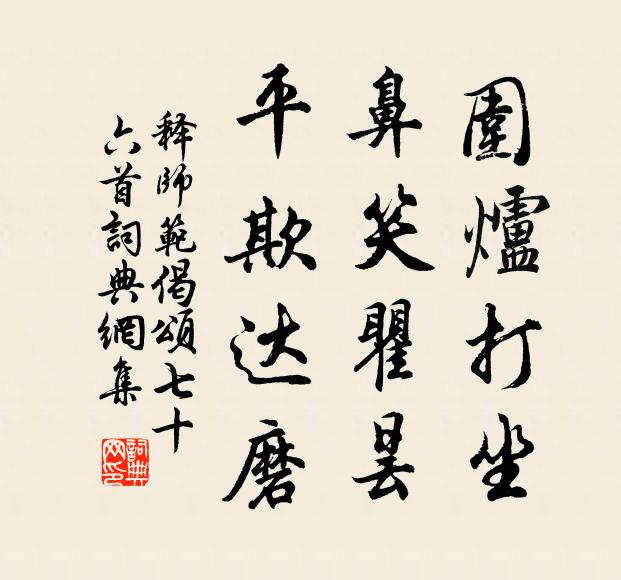 圍爐打坐
鼻笑瞿昙
平欺达磨
释師範偈頌七十
六首詞典網集
詞典網印